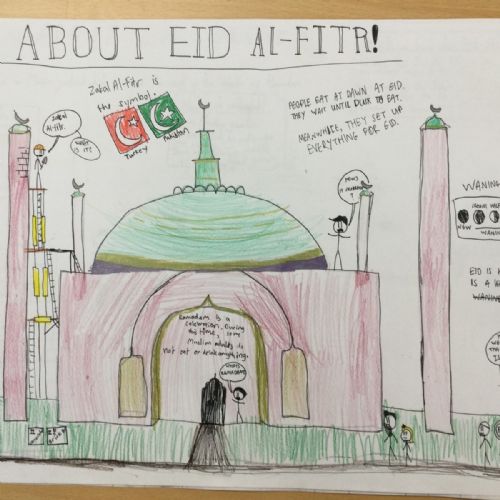 ABOUT EID AL-FITR!
Zakal Al-fitr is
the symbol.
Turkey
Pakistan
PEOPLE EAT AT DAWN AT EID.
THEY WAIT UNTIL DUSK TO EAT.
MEANWHILE, THEY SET UP
EVERYTHING FOR EID.
Zakal
Al-fitr.
WHAT
IS IT?
WANING
NEW
WANING
EID IS
IS A
WANING
Ramadam is a
celebration. During
this time, some
Muslim adults do
not eat or drink anything.
WHAT'S
RAMADAM?